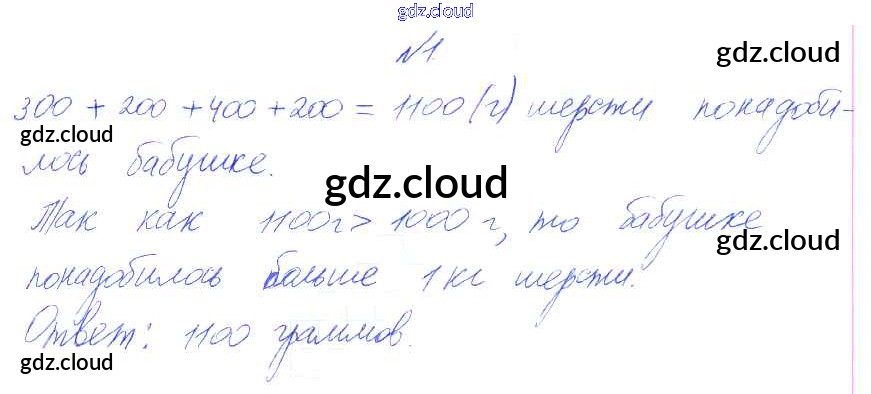 gdz.cloud
№1.
gdz.cloud
300 + 200 + 400 + 200 = 1100 (г) шерсти понадоби-
gdz.cloud
лось бабушке.
gdz.cloud
Так как 1100г > 1000 г, то бабушке
gdz.cloud
понадобилось больше 1 кг шерсти.
Ответ: 1100 граммов.
gdz.cloud
gdz.cloud